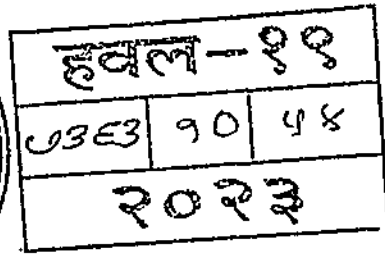 हवल-११
७३६३ १० ५४
२०२३